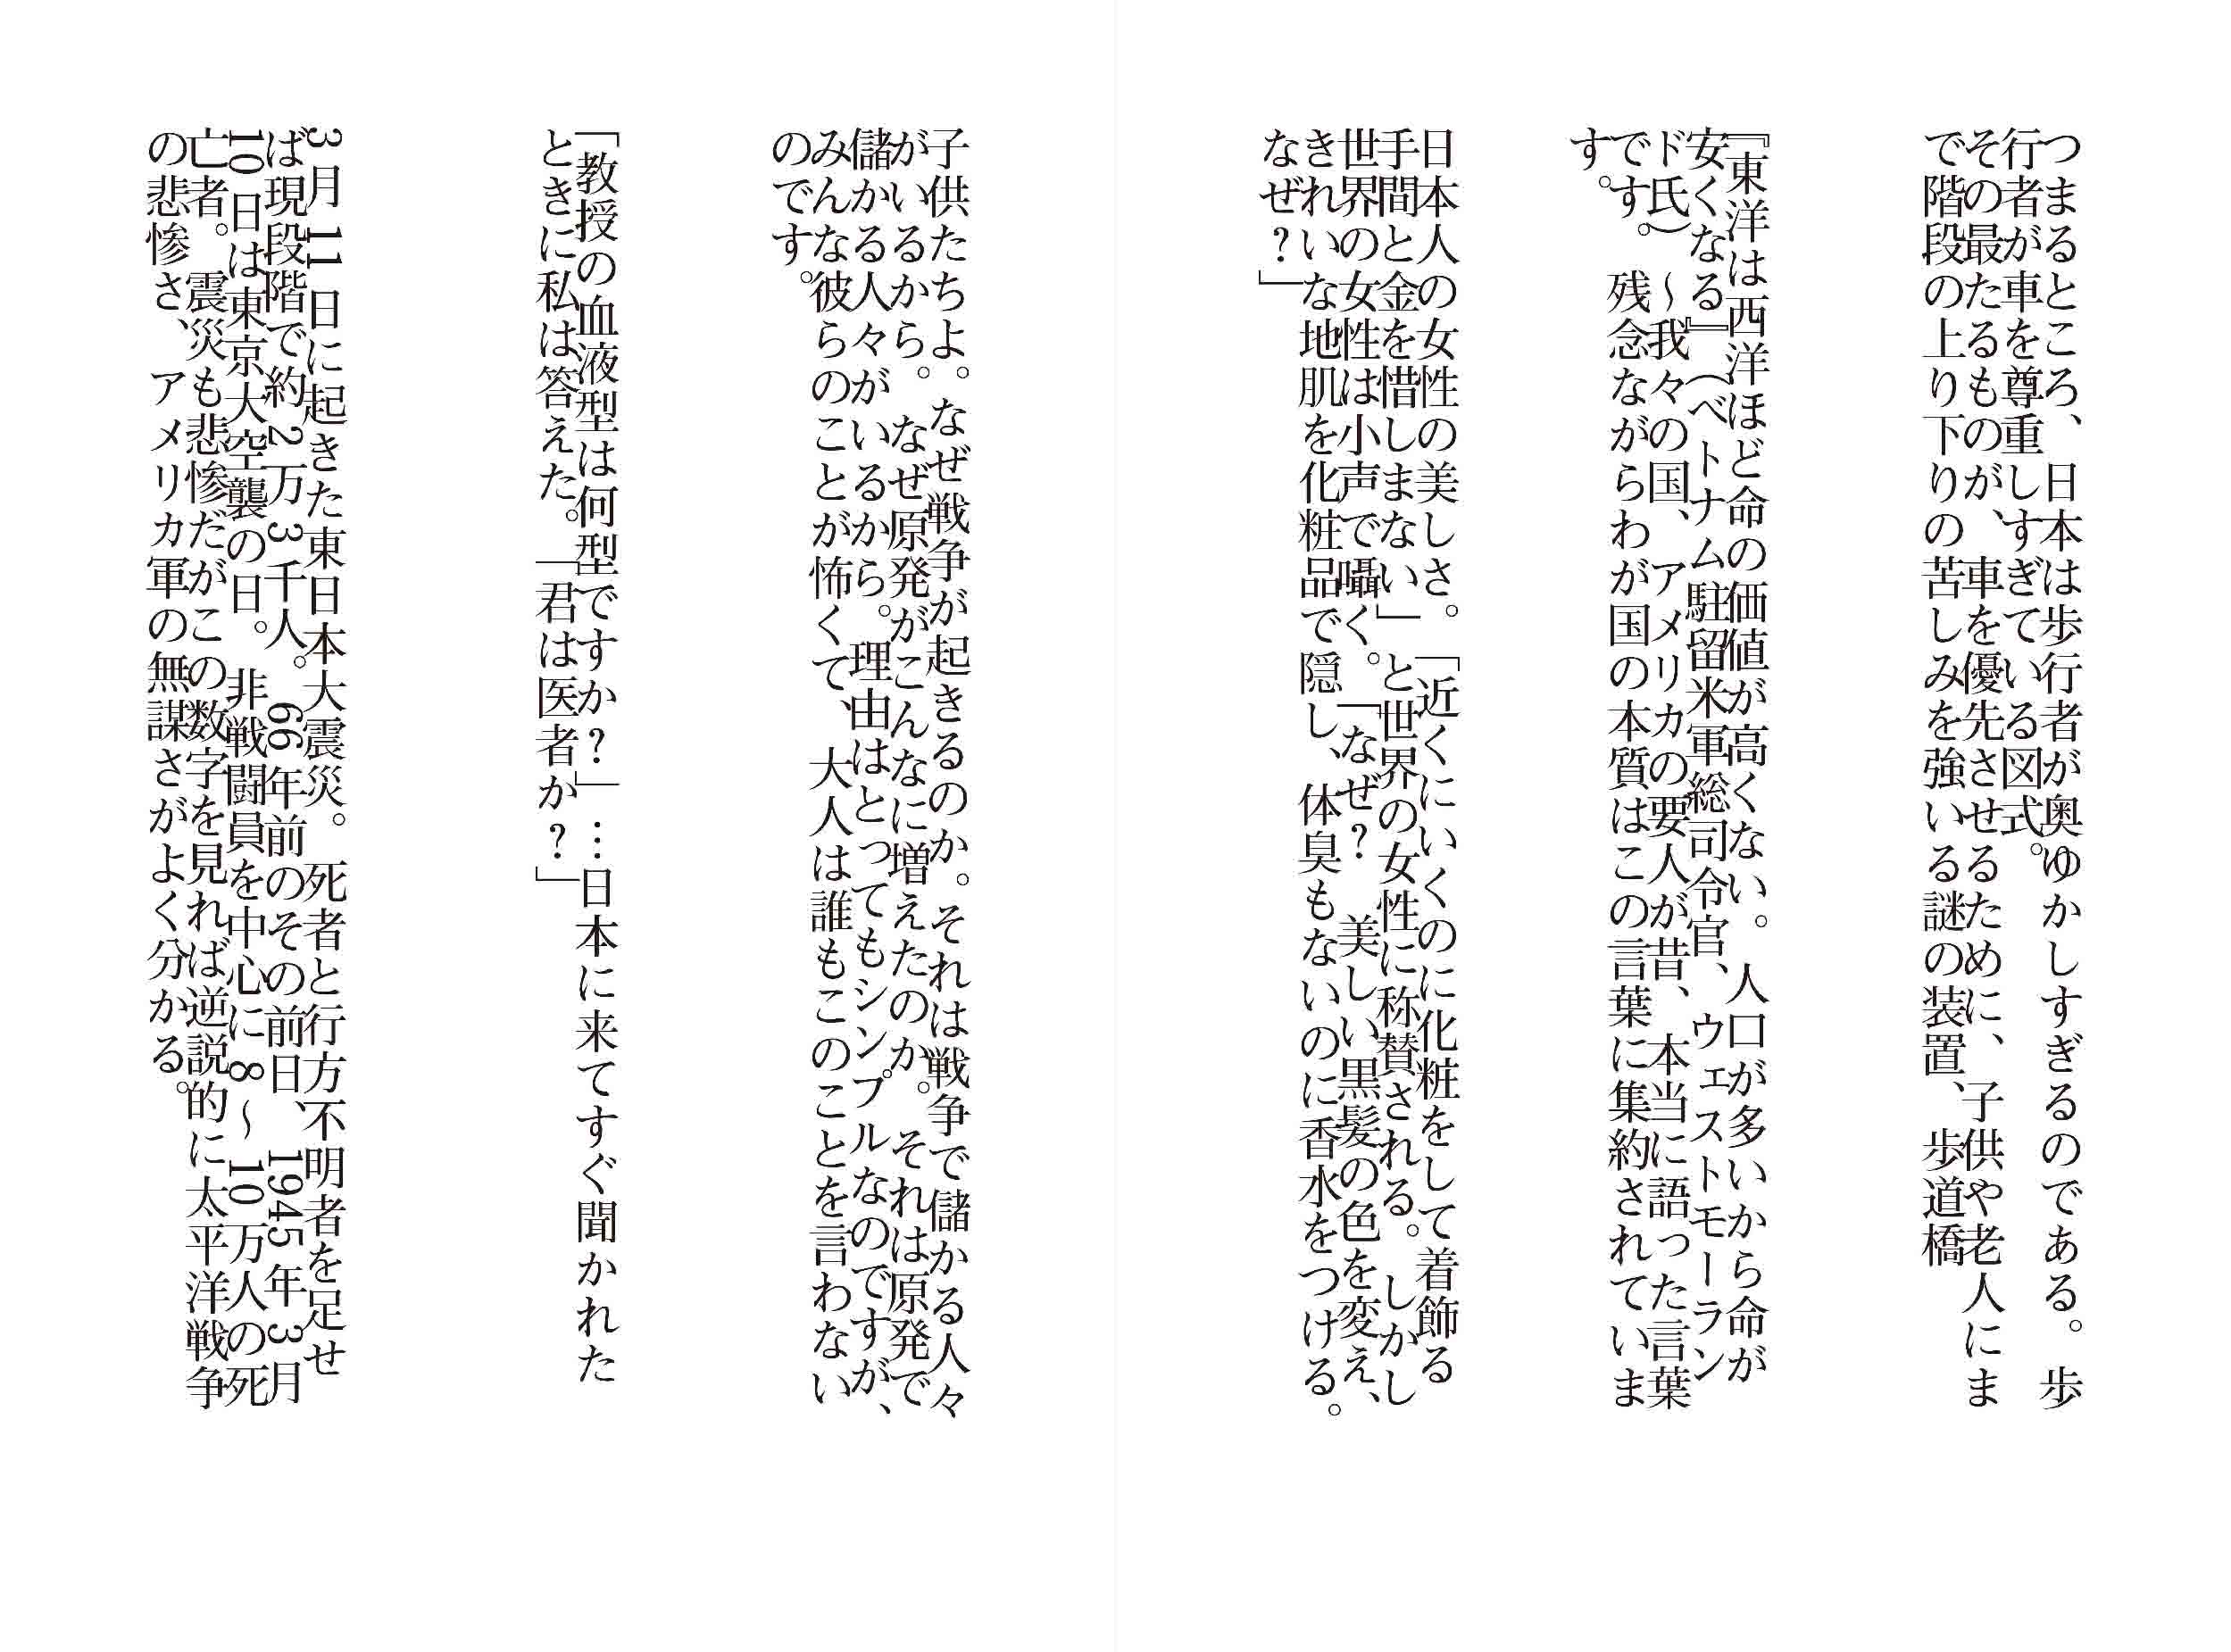 つまるところ、日本は歩行者が奥ゆかしすぎるのである。歩
行者が車を尊重しすぎている図式。
その最たるものが、車を優先させるために、子供や老人にま
で階段の上り下りの苦しみを強いる謎の装置、歩道橋
『東洋は西洋ほど命の価値が高くない。人口が多いから命が
安くなる』（ベトナム駐留米軍総司令官、ウェストモーラン
ド氏）～我々の国、アメリカの要人が昔、本当に語った言葉
です。残念ながらわが国の本質はこの言葉に集約されていま
す。
日本人の女性の美しさ。「近くにいくのに化粧をして着飾る
手間と金を惜しまない」と世界の女性に称賛される。しかし
世界の女性は小声で囁く。「なぜ？ 美しい黒髪の色を変え、
きれいな地肌を化粧品で隠し、体臭もないのに香水をつける。
なぜ？」
子供たちよ。なぜ戦争が起きるのか。それは戦争で儲かる人々
がいるから。なぜ原発がこんなに増えたのか。それは原発で
儲かる人々がいるから。理由はとってもシンプルなのですが、
みんな彼らのことが怖くて、大人は誰もこのことを言わない
のです。
「教授の血液型は何型ですか？」…日本に来てすぐ聞かれた
ときに私は答えた。「君は医者か？」
3月11日に起きた東日本大震災。死者と行方不明者を足せ
ば現段階で約2万3千人。66年前のその前日、1945年3月
10日は東京大空襲の日。非戦闘員を中心に8～10万人の死
亡者。震災も悲惨だがこの数字を見れば逆説的に太平洋戦争
の悲惨さ、アメリカ軍の無謀さがよく分かる。